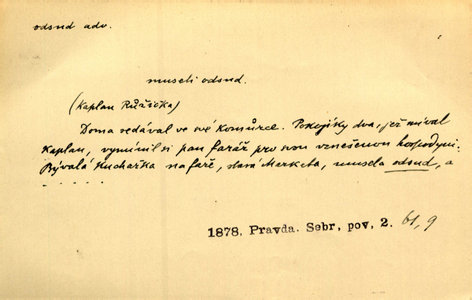 odsud adv.
museti odsud.
(Kaplan Růžička)
Doma sedával ve své komůrce. Pokojíky dva, jež míval
kaplan, vymínil si pan farář pro svou vznešenou hospodyni.
Bývalá kuchařka na faře, stará Markéta, musela odsud, a
. . . . .
1878, Pravda. Sebr, pov, 2. 61,9